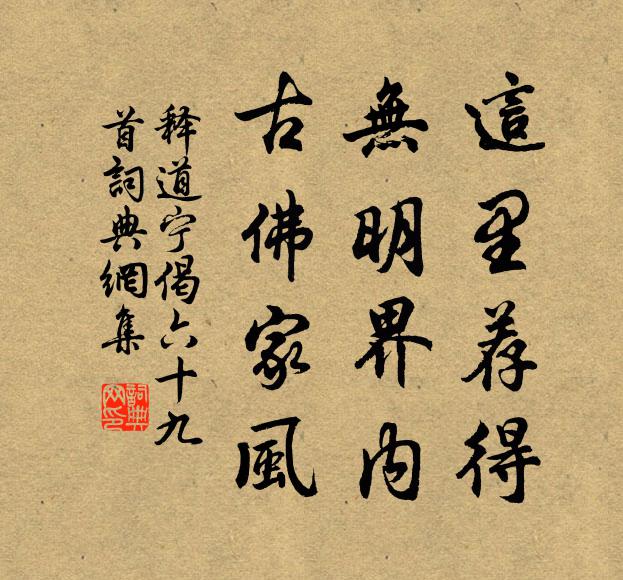 這里荐得
無明界内
古佛家風
释道宁偈六十九
首詞典網集
詞典网印